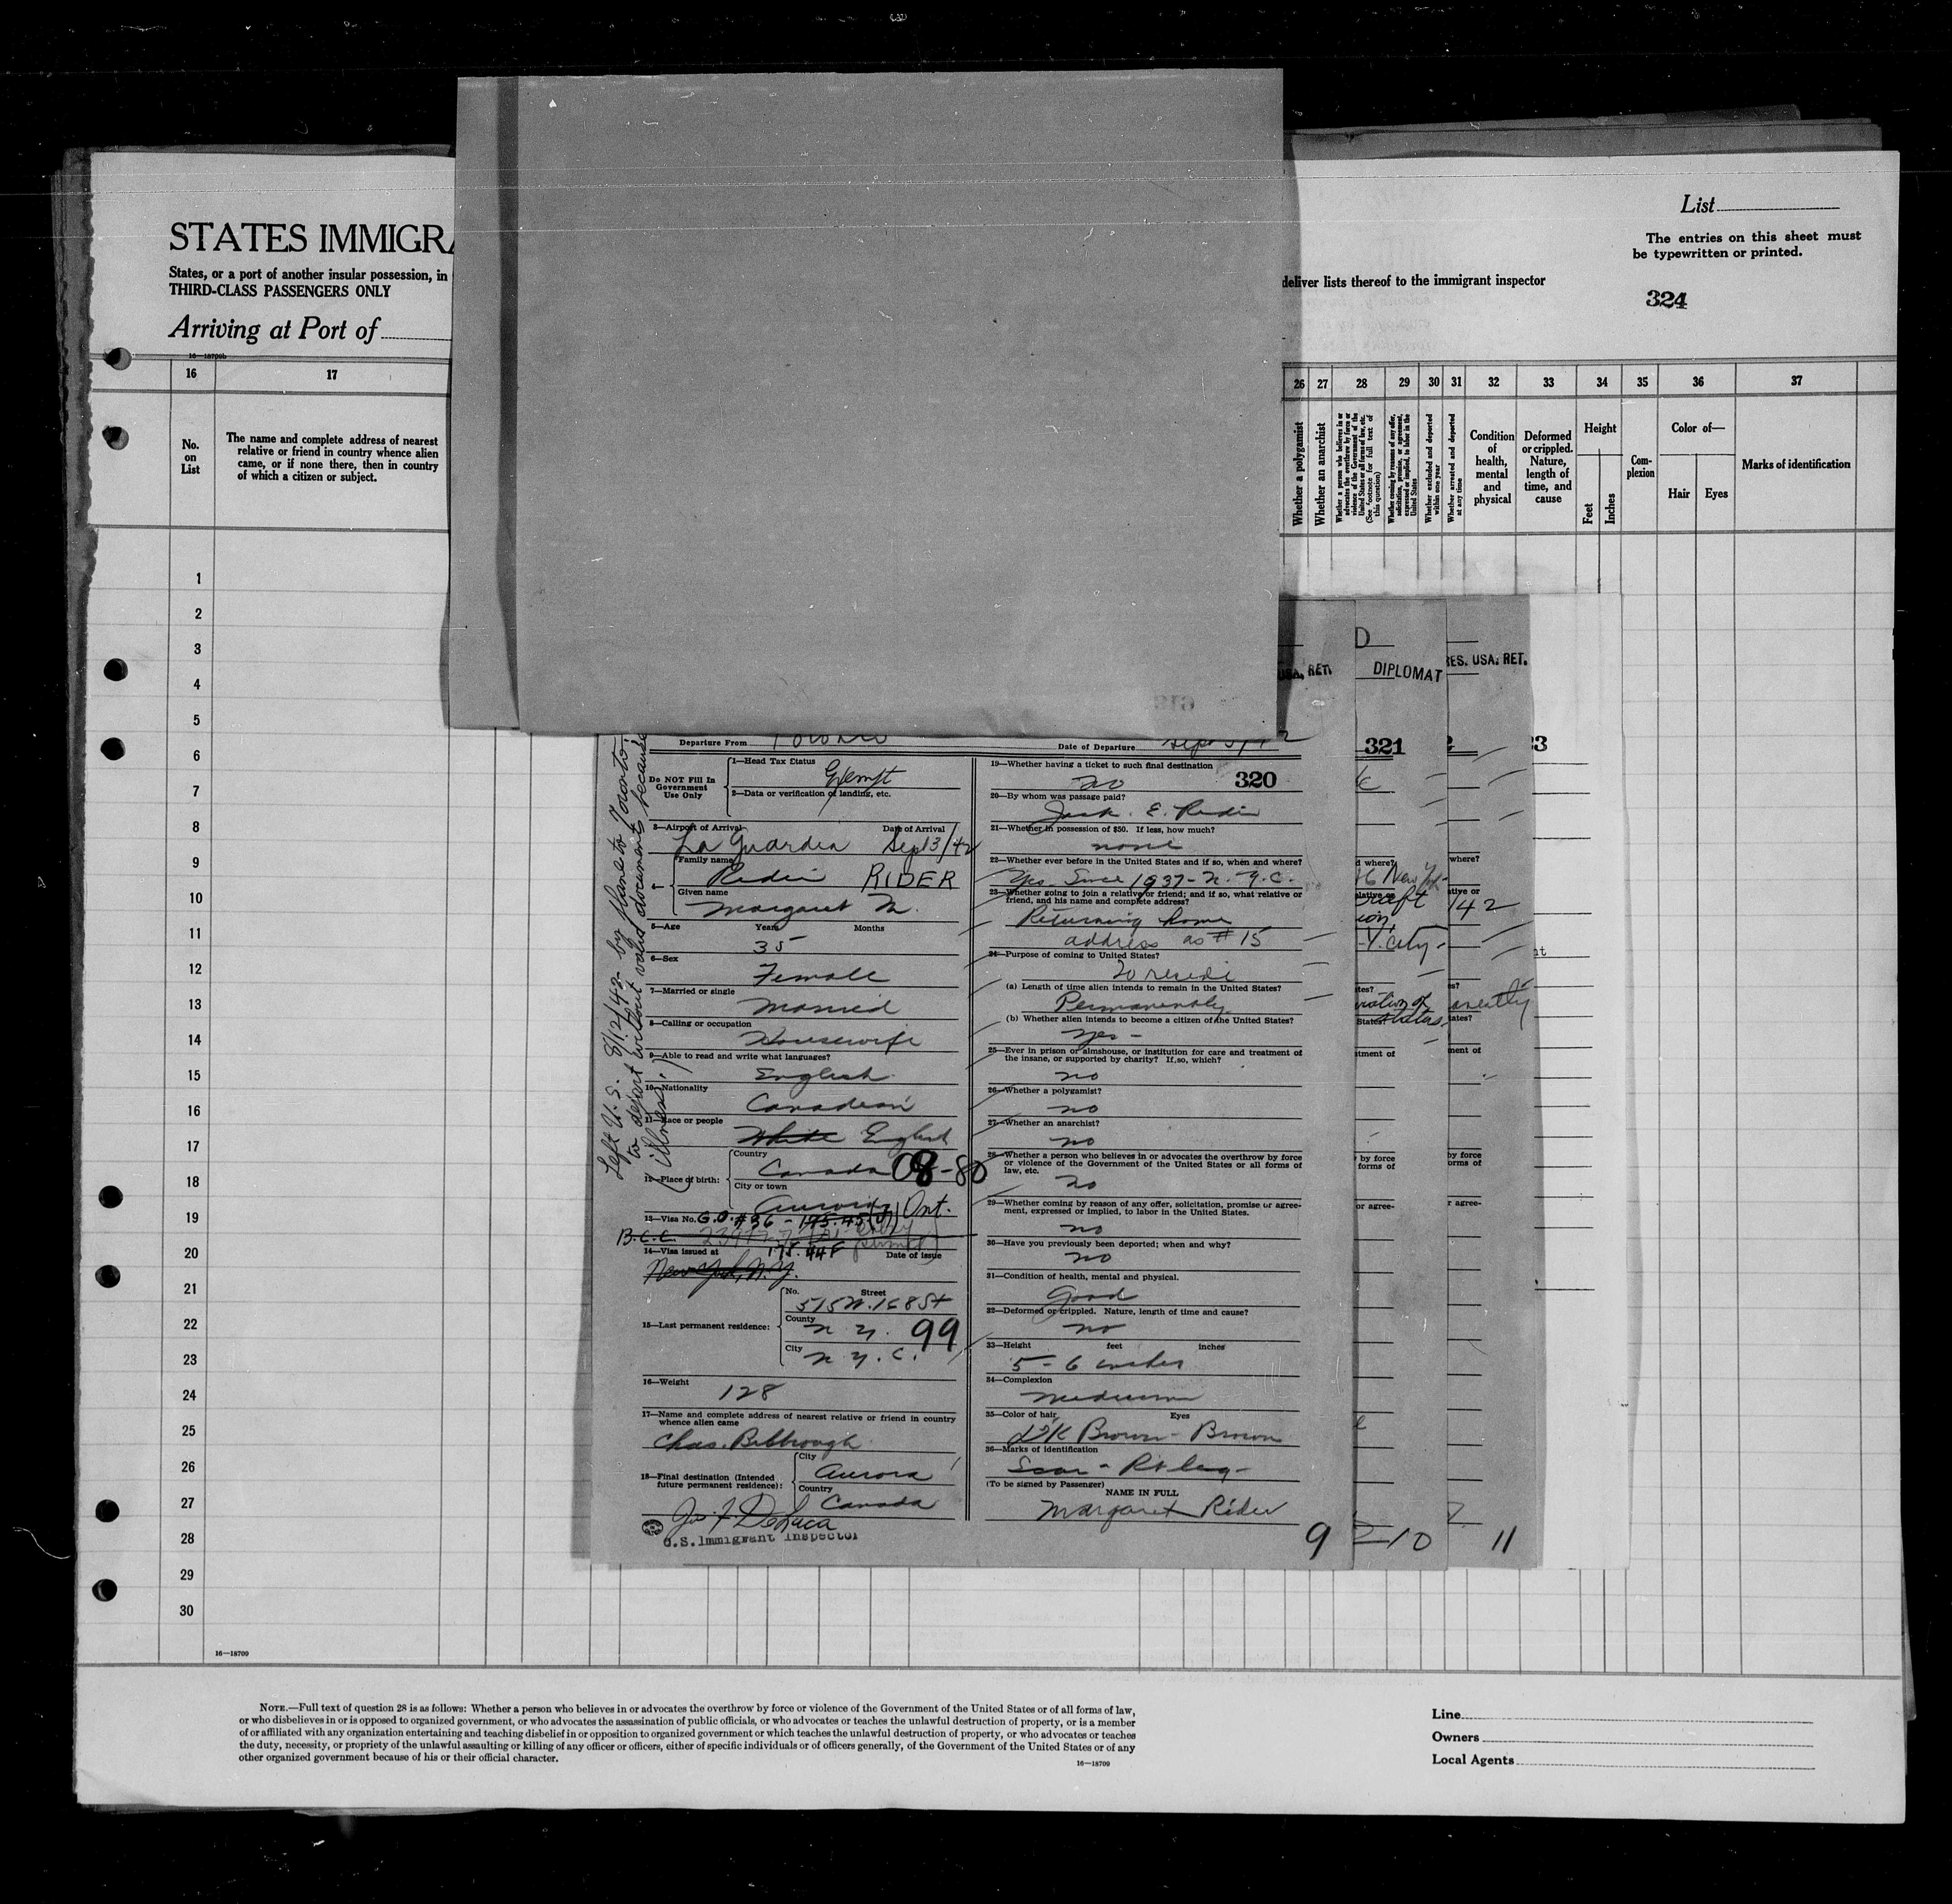 STATES IMMIGRA
States, or a port of another insular possession, in
THIRD-CLASS PASSENGERS ONLY
Arriving at Port of
deliver lists thereof to the immigrant inspector
List
The entries on this sheet must
be typewritten or printed.
324
16—18709b
16 17 26 27 28 29 30 31 32 33 34 35 36 37
No.
on
List
The name and complete address of nearest
relative or friend in country whence alien
came, or if none there, then in country
of which a citizen or subject.
Whether a polygamist
Whether an anarchist
Whether a person who believes in or
advocates the overthrow by force or
violence of the Government of the
United States or all forms of law, etc.
(See footnote for full text of
this question)
Whether coming by reasons of any offer,
solicitation, promise, or agreement,
expressed or implied, to labor in the
United States
Whether excluded and deported
within one year
Whether arrested and deported
at any time
Condition
of
health,
mental
and
physical
Deformed
or crippled.
Nature,
length of
time, and
cause
Height
Feet
Inches
Com-
plexion
Color of—
Hair
Eyes
Marks of identification
1
2
3
4
5
6
7
8
9
10
11
12
13
14
15
16
17
18
19
20
21
22
23
24
25
26
27
28
29
30
16—18709
Left U.S. 8/12/42 by plane to Toronto
to depart without valid documents because
illness.
Departure From Toronto
Date of Departure Sept 3/42
Do NOT Fill In
Government
Use Only
1—Head Tax Status
Exempt
2—Data or verification of landing, etc.
3—Airport of Arrival Date of Arrival
La Guardia Sep 13/42
4—
Family name
Rider RIDER
Given name
Margaret M.
5—Age Years Months
35
6—Sex
Female
7—Married or single
Married
8—Calling or occupation
Housewife
9—Able to read and write what languages?
English
10—Nationality
Canadian
11—Race or people
White English
12—Place of birth:
Country
Canada 08-80
City or town
Aurora, Ont.
13—Visa No. G.O. #36 - 175.45(j)
B.C.C.
175.44F
14—Visa issued at Date of issue
New York, N.Y.
15—Last permanent residence:
No. Street
515 W. 168 St
County
N.Y. 99
City
N.Y.C.
16—Weight
128
17—Name and complete address of nearest relative or friend in country
whence alien came
Chas. Bilbrough
18—Final destination (Intended
future permanent residence):
City
Aurora
Country
Canada
Jos F. DeLuca
U.S. Immigrant Inspector
19—Whether having a ticket to such final destination
no 320
20—By whom was passage paid?
Jack E. Rider
21—Whether in possession of $50. If less, how much?
none
22—Whether ever before in the United States and if so, when and where?
Yes. Since 1937 - N.Y.C.
23—Whether going to join a relative or friend; and if so, what relative or
friend, and his name and complete address?
Returning home
address as # 15
24—Purpose of coming to United States?
To reside
(a) Length of time alien intends to remain in the United States?
Permanently
(b) Whether alien intends to become a citizen of the United States?
Yes -
25—Ever in prison or almshouse, or institution for care and treatment of
the insane, or supported by charity? If so, which?
no
26—Whether a polygamist?
no
27—Whether an anarchist?
no
28—Whether a person who believes in or advocates the overthrow by force
or violence of the Government of the United States or all forms of
law, etc.
no
29—Whether coming by reason of any offer, solicitation, promise or agree-
ment, expressed or implied, to labor in the United States.
no
30—Have you previously been deported; when and why?
no
31—Condition of health, mental and physical.
Good
32—Deformed or crippled. Nature, length of time and cause?
no
33—Height feet inches
5 - 6 inches
34—Complexion
medium
35—Color of hair Eyes
DK Brown - Brown
36—Marks of identification
Scar - Rt leg -
(To be signed by Passenger)
NAME IN FULL
Margaret Rider
9
USA, RET.
D
DIPLOMAT
321
d where?
New York
relative or
Y. City -
States?
tment of
by force
forms of
or agree-
10
RES. USA, RET.
where?
tive or
142
s?
anently
tates?
ment of
by force
orms of
r agree-
11
NOTE.—Full text of question 28 is as follows: Whether a person who believes in or advocates the overthrow by force or violence of the Government of the United States or of all forms of law,
or who disbelieves in or is opposed to organized government, or who advocates the assassination of public officials, or who advocates or teaches the unlawful destruction of property, or is a member
of or affiliated with any organization entertaining and teaching disbelief in or opposition to organized government or which teaches the unlawful destruction of property, or who advocates or teaches
the duty, necessity, or propriety of the unlawful assaulting or killing of any officer or officers, either of specific individuals or of officers generally, of the Government of the United States or of any
other organized government because of his or their official character.
16—18709
Line
Owners
Local Agents